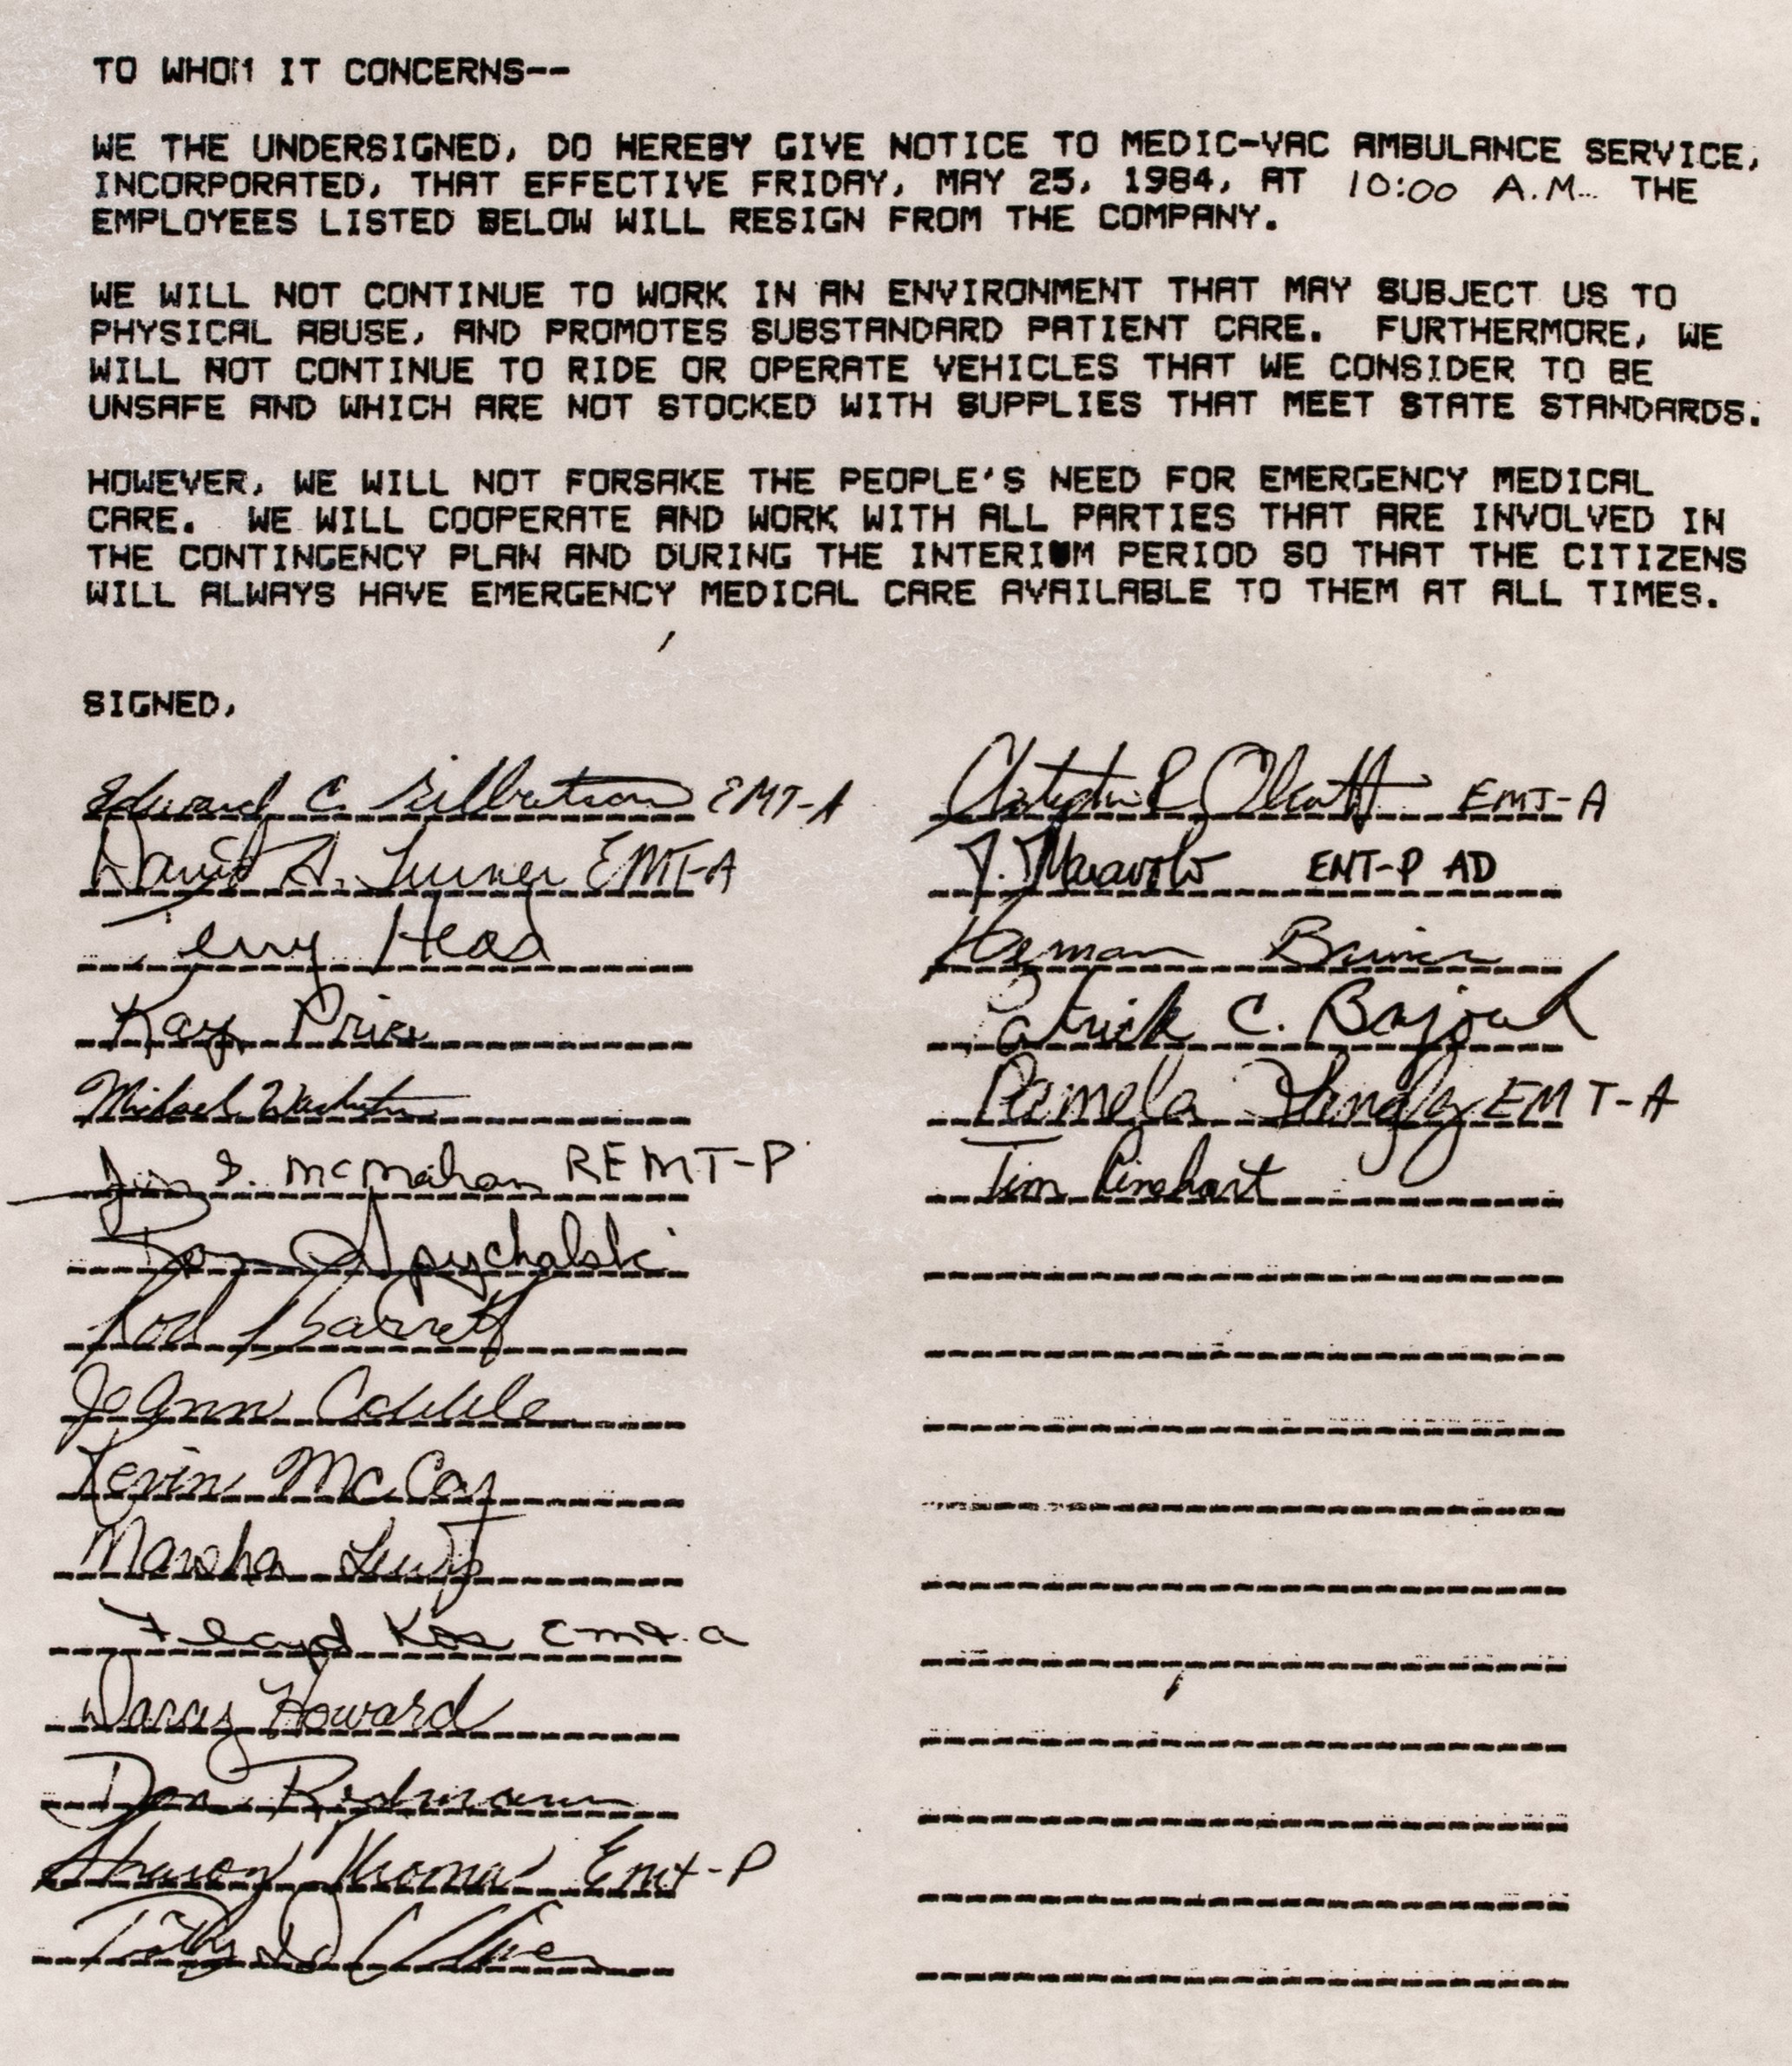 TO WHOM IT CONCERNS--
WE THE UNDERSIGNED, DO HEREBY GIVE NOTICE TO MEDIC-VAC AMBULANCE SERVICE,
INCORPORATED, THAT EFFECTIVE FRIDAY, MAY 25, 1984, AT 10:00 A.M.. THE
EMPLOYEES LISTED BELOW WILL RESIGN FROM THE COMPANY.
WE WILL NOT CONTINUE TO WORK IN AN ENVIRONMENT THAT MAY SUBJECT US TO
PHYSICAL ABUSE, AND PROMOTES SUBSTANDARD PATIENT CARE. FURTHERMORE, WE
WILL NOT CONTINUE TO RIDE OR OPERATE VEHICLES THAT WE CONSIDER TO BE
UNSAFE AND WHICH ARE NOT STOCKED WITH SUPPLIES THAT MEET STATE STANDARDS.
HOWEVER, WE WILL NOT FORSAKE THE PEOPLE'S NEED FOR EMERGENCY MEDICAL
CARE. WE WILL COOPERATE AND WORK WITH ALL PARTIES THAT ARE INVOLVED IN
THE CONTINGENCY PLAN AND DURING THE INTERIUM PERIOD SO THAT THE CITIZENS
WILL ALWAYS HAVE EMERGENCY MEDICAL CARE AVAILABLE TO THEM AT ALL TIMES.
SIGNED,
Edward C. EMT-A
David A. Turner EMT-A
Terry Head
Kay Price
Michael
Jim S. McMahan REMT-P
Spychalski
Rod Barrett
JoAnn
Kevin McCoy
Marsha
Floyd EMT-a
Darcy Howard
Don
Sharon Thomas Emt-P
EMT-A
J. EMT-P AD
Herman
Patrick C.
Pamela EMT-A
Tim Rinehart